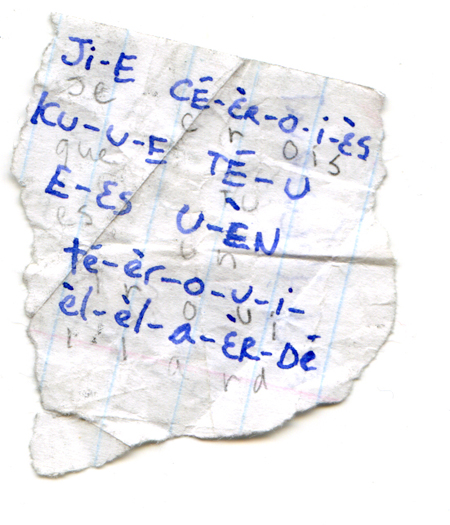 Ji-E CÉ-ÈR-O-i-ÈS
je c r o i s
KU-U-E TÉ-U
que tu
E-ES U-ÈN
es un
té-èr-O-U-i-
t r o u i
èl-èl-a-ÈR-DÉ
l l a r d